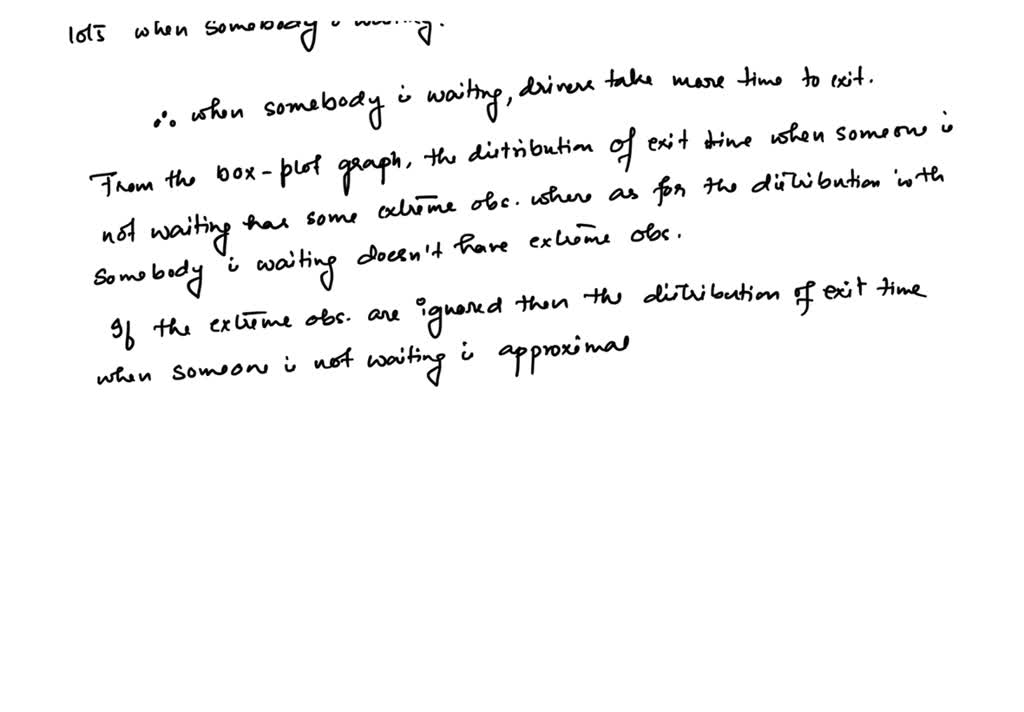 lots when somebody i waiting.
∴ when somebody i waiting, drivers take more time to exit.
From the box-plot graph, the distribution of exit time when someone is
not waiting has some extreme obs. where as for the distribution with
somebody i waiting doesn't have extreme obs.
If the extreme obs. are ignored then the distribution of exit time
when someone i not waiting is approximal